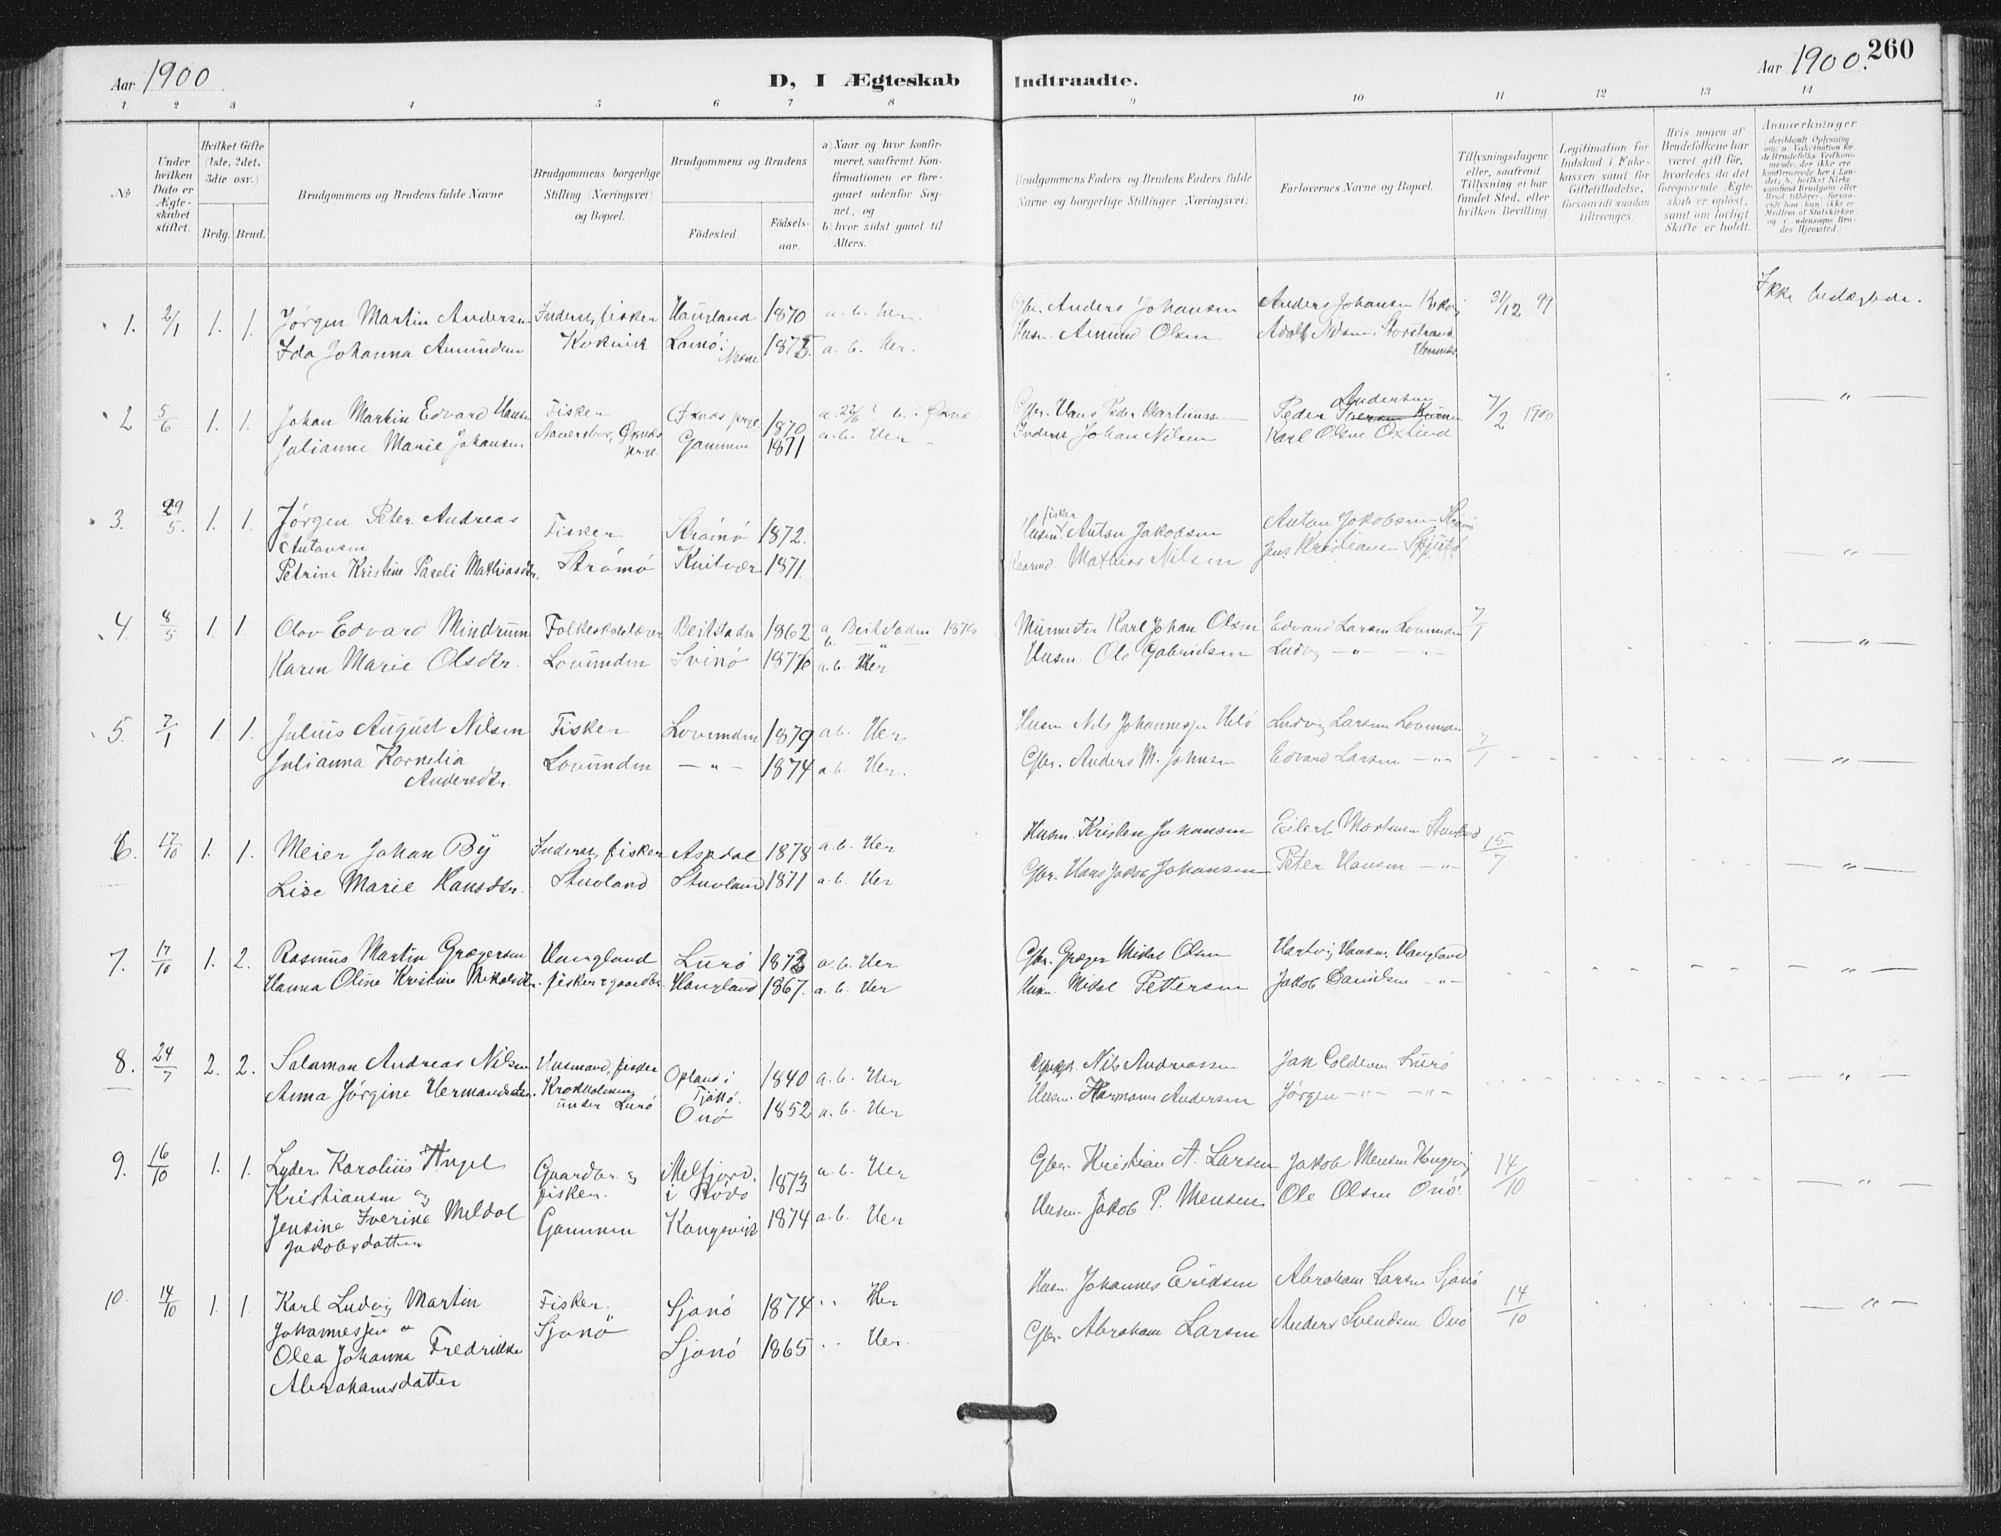 Aar 1900
D, I Ægteskab Indtraadte.
Aar 1900. 260
1 2 3 4 5 6 7 8 9 10 11 12 13 14
No
Under hvilken Dato er Ægteskabet stiftet.
Hvilket Gifte (1ste, 2det, 3die osv.)
Brdg. Brud.
Brudgommens og Brudens fulde Navne
Brudgommens borgerlige Stilling (Næringsvei) og Bopæl.
Brudgommens og Brudens
Födested.
Födselsaar.
a) Naar og hvor konfirmeret, saafremt Konfirmationen er foregaaet udenfor Sognet, og
b) hvor sidst gaaet til Alters.
Brudgommens Faders og Brudens Faders fulde Navne og borgerlige Stillinger (Næringsvei)
Forlovernes Navne og Bopæl.
Tillysningsdagene eller, saafremt Tillysning ei har fundet Sted, efter hvilken Bevilling.
Legitimation for Indskud i Enkekassen samt for Giftetilladelse, forsaavidt saadan tiltrænges.
Hvis nogen af Brudefolkene har været gift för, hvorledes da det foregaaende Ægteskab er oplöst, samt om lovligt Skifte er holdt.
Anmærkninger
(deriblandt Oplysning om: a. Vakcination for de Brudefolks Vedkommende, der ikke ere konfirmerede her i Landet, b. hvilket Kirkesamfund Brudgom eller Brud tilhörer, forsaavidt han (hun) ikke er Medlem af Statskirken, og c. udensogns Brudes Hjemsted.)
1. 2/1 1. 1. Jörgen Martin Andersen Inderst, fisker Haugland 1870 a. b. her. Gbr. Anders Johansen Anders Johansen Kvikvig 31/12 99 Ikke beslægtede.
Ida Johanna Amundsen Kvikvik 187 a. b. her. Husm. Amund Olsen Adolf Nilsen, Storstrand
2 5/6 1. 1. Johan Martin Edvard Hansen Fisker Öxnæs prgj. 1870 Gbr. Hans Peder Martinus Peder Andersen 7/2 1900 — " —
Julianne Marie Johansen Öxnæs prgj. Gammen 1871 a. b. her Inderst Johan Nilsen Karl Olsen
3. 29/5. 1. 1. Jörgen Peter Andreas Fisker Strömö 1872. fisker Husm. Anton Jakobsen Anton Jakobsen Strömö
Antonsen
Petrine Kristine Pareli Mathiasdtr. Strömö Kvitvær 1871. Mathias Nilsen Jens Kristiansen — " —
4. 8/5 1. 1. Olov Edvard Mindrum Folkeskolelærer Beitstaden 1862 a Beitstaden Murmester Karl Johan Olsen Edvard Larsen Lovunden 7/1
Karen Marie Olsdtr. Lovunden Svinö 1870 a. b. Her Husm. Ole Gabrielsen Ludvig — " — — " —
5. 7/1 1. 1. Julius August Nilsen Fisker Lovunden 1879 a b. Her Husm. Nils Johannessen Ludvig Larsen Lovunden
Julianna Kornelia Lovunden — " — 1874 a b. Her. Gbr. Anders M. Johnsen Edvard Larsen — " — 7/1 — " —
Andersdtr.
6. 17/10 1. 1. Meier Johan By Inderst, fisker Aspdal 1878 a. b. Her Husm. Kristen Johansen Eilert Mortensen Stuvland 15/7
Lise Marie Hansdtr. Stuvland Stuvland 1871 a. b. Her Gbr. Hans Jakob Johansen Peter Hansen — " — — " —
7. 17/10 1. 2. Rasmus Martin Grægersen Haugland Lurö 1873 a. b. Her Gbr. Græger Mikal Olsen Hartvig Hansen, Haugland
Hanna Oline Kristine Mikalsdtr. fisker & gaardbr. Haugland 1867. a. b. Her Husm. Mikal Pettersen Jakob Danielsen — " — — " —
8. 24/7 2. 2. Salamon Andreas Nilsen Husmand, fisker Opland i Tjöttö. 1840 a. b. Her Nils Andreassen Jak Coldevin Lurö — " —
Anna Jörgine Hermansdtr. Krokholmen under Lurö Onö 1852 a. b. Her Husm. Hermann Andersen Jörgen — " — — " —
9. 16/10 1. 1. Lyder Karolius Angel Gaardbr. & fisker. Melfjord. i Rödö 1873 a. b. Her Gbr. Kristian A. Larsen Jakob Mensen Kongsvig 14/10
Kristiansen og
Jensine Iverine Meldal Gammen Kongsvik 1874 a. b. Her Husm. Jakob P. Mensen Ole Olsen Onö — " —
Jakobsdatter
10. 14/10 1. 1. Karl Ludvig Martin Fisker. Sjonö 1874 " Her Husm. Johannes Eridsen Abraham Larsen Sjonö 14/10 — " —
Johannessen o Sjonö
Olea Johanna Fredrikke Sjonö 1865 " Her. Gbr. Abraham Larsen Anders Svendsen Onö
Abrahamsdatter